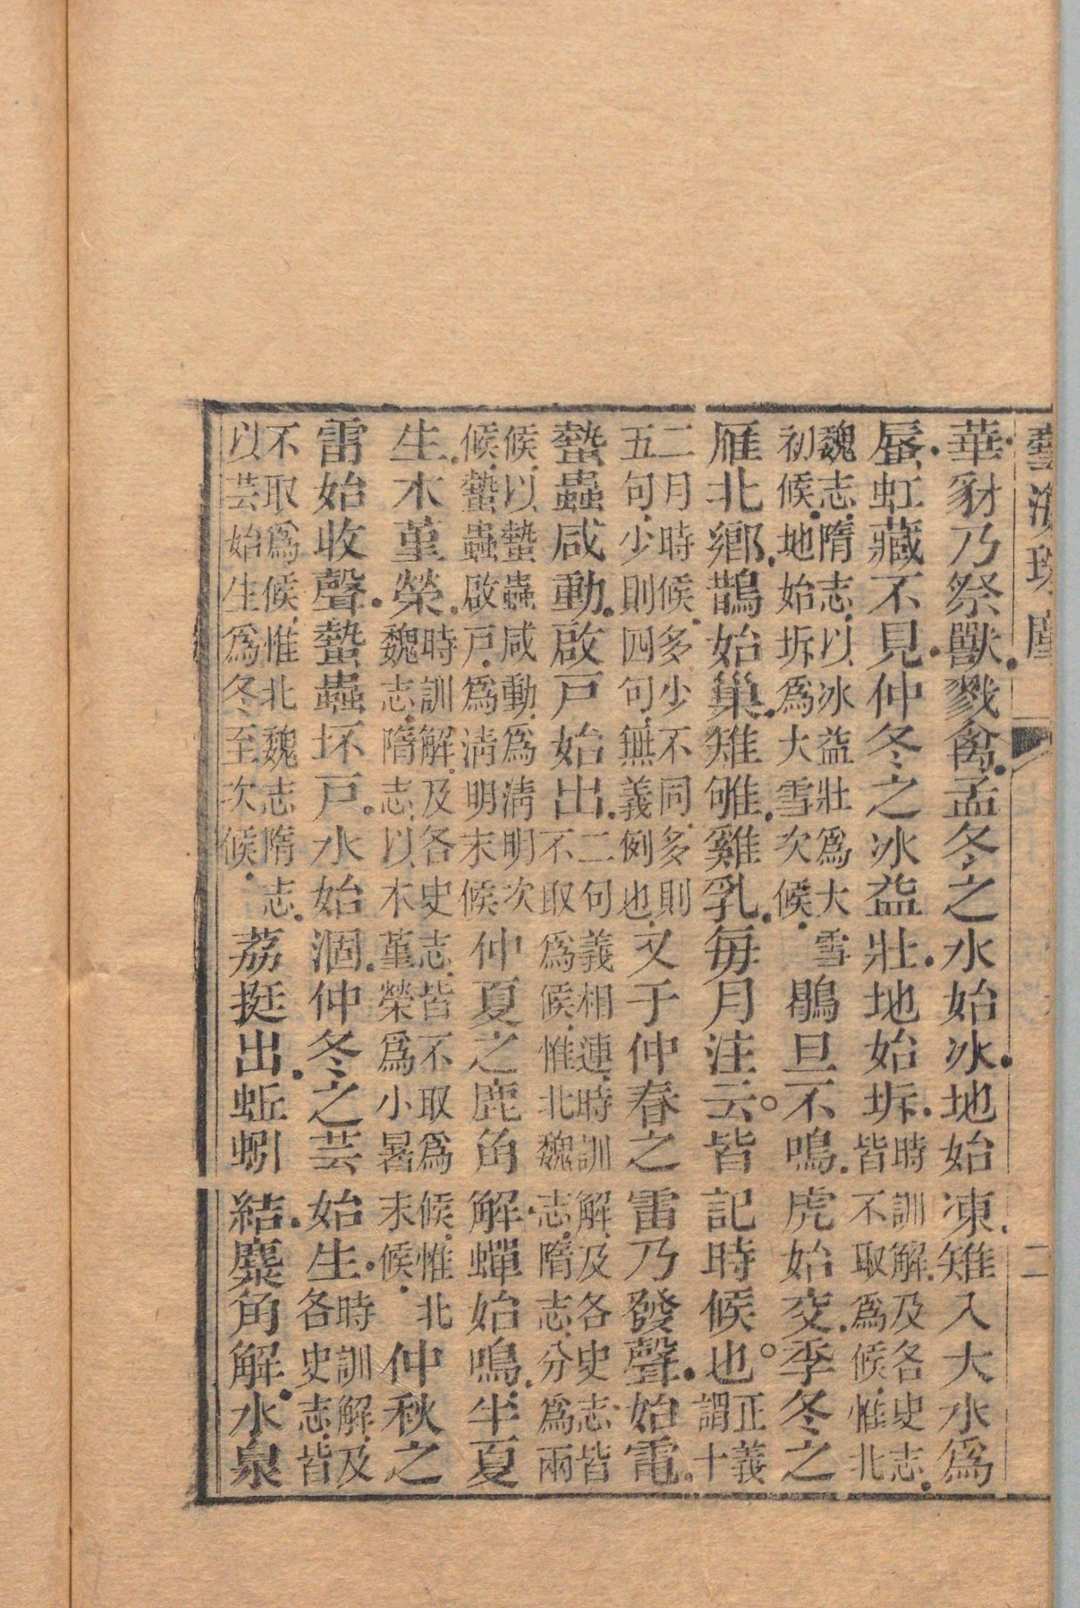 藝海珠塵 二
華豺乃祭獸戮禽孟冬之水始冰地始凍雉入大水爲
蜃虹藏不見仲冬之冰益壯地始坼時訓解及各史志皆不取爲候惟北
魏志隋志以冰益壯爲大雪初候地始坼爲大雪次候鶡旦不鳴虎始交季冬之
雁北鄉鵲始巢雉雊雞乳每月注云皆記時候也正義謂十
二月時候多少不同多則五句少則四句無義例也又于仲春之雷乃發聲始電
蟄蟲咸動啟戸始出二句義相連時訓解及各史志皆不取爲候惟北魏志隋志分爲兩
候以蟄蟲咸動爲淸明次候蟄蟲啟戸爲淸明末候仲夏之鹿角解蟬始鳴半夏
生木菫榮時訓解及各史志皆不取爲候惟北魏志隋志以木菫榮爲小暑末候仲秋之
雷始收聲蟄蟲坏戸水始涸仲冬之芸始生時訓解及各史志皆
不取爲候惟北魏志隋志以芸始生爲冬至次候荔挺出蚯蚓結麋角解水泉